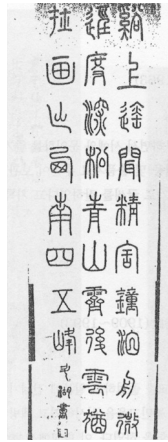 谿上遥聞精舍鐘泊舟微
徑度深松青山霽後雲猶
在畫出西南四五峰